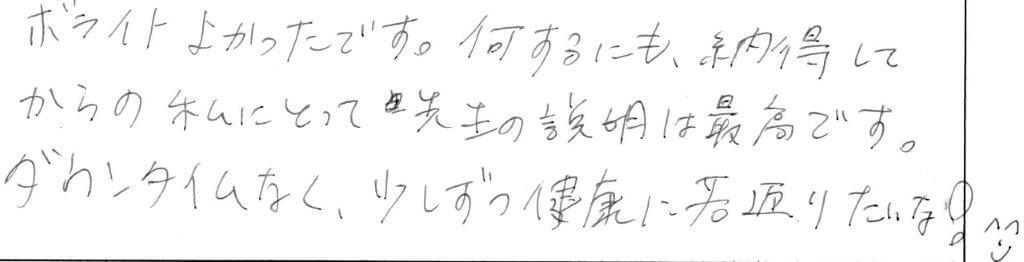 ボライトよかったです。何するにも、納得して
からの私にとって先生の説明は最高です。
ダウンタイムなく、少しずつ健康に若返りたいな！